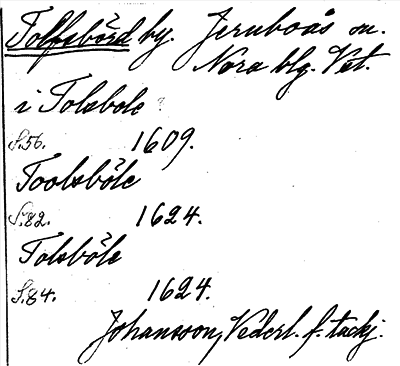 Tolfsbörd by. Jernboås sn.
Nora blg. Vst.
i Tolsbole ?
S.56. 1609.
Toolsböle
S.82. 1624.
Tolsböle
S.84. 1624.
Johansson, Vederl. f. tackj.